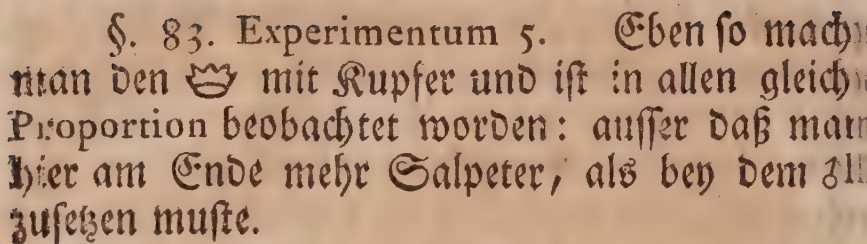 §. 83. Experimentum 5. Eben ſo mach
man den mit Kupfer und iſt in allen gleich
Proportion beobachtet worden: auſſer daß man
hier am Ende mehr Salpeter, als bey dem
zuſetzen muſte.